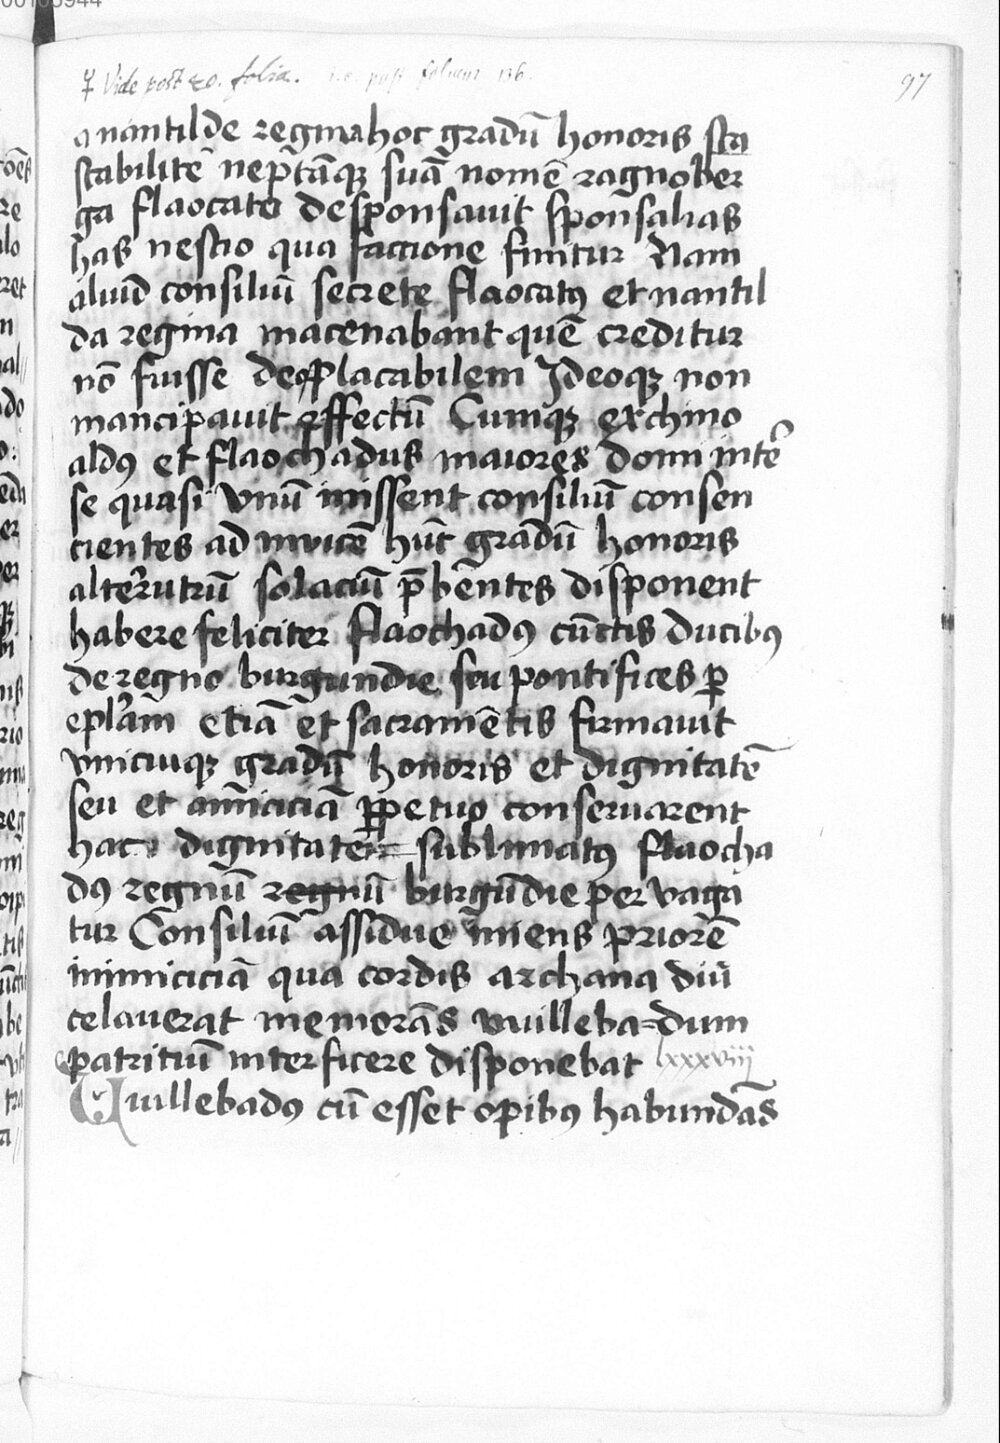 Vide post 20. folia. i.e. post folium 136.
97
a nantilde reginahoc gradū honoris sta
stabilitē nept̄āqꝫ suā nomē ragnober
ga flaocato desponsauit sponsalias
has nescio qua faccione finitur Nam
aluid consiliū secrete flaocatꝰ et nantil
da regina macenabant quē creditur
nō fuisse deo placabilem Ideoqꝫ non
mancipauit effectū Cumqꝫ erchino
aldꝰ et flaochadus maiores domi inter
se quasi vnū inissent consiliū consen
cientes ad inuicē hūc gradū honoris
alterutrū solaciū p̄bentes disponent
habere feliciter flaochadꝰ cūctis ducibꝰ
de regno burgundie seu pontifices ꝑ
ep̄lam etiā et sacramētis firmauit
vnicuiqꝫ gradū honoris et dignitatē
seu et amiciciā ꝑpetuo conseruarent
hac dignitate sublimatꝰ flaocha
dꝰ regnū regnū burgūdie per vaga
tur Consiliū assidue iniens priorē
inimiciciā qua cordis archana diū
celauerat memorās vuilleba=dum
patritiū interficere disponebat lxxxviij
Vuillebadꝰ cū esset opibꝰ habundās